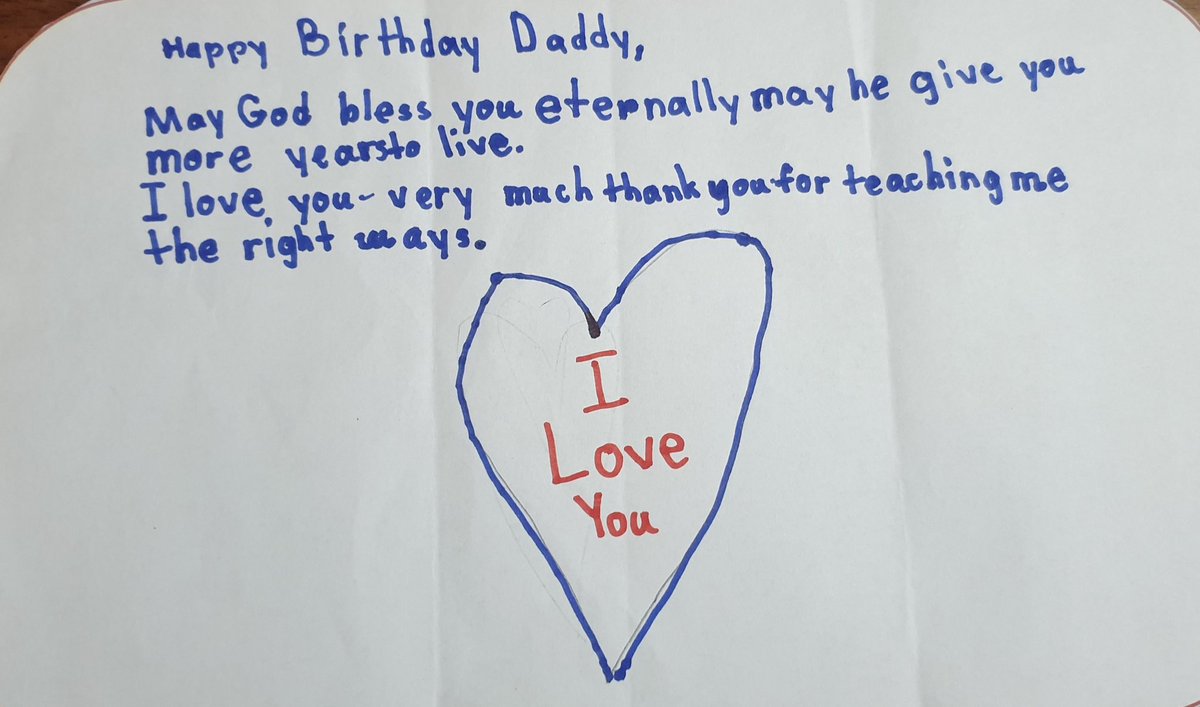 Happy Birthday Daddy,
May God bless you eternally may he give you
more yearsto live.
I love, you-very much thank you for teaching me
the right ways.
I
Love
You